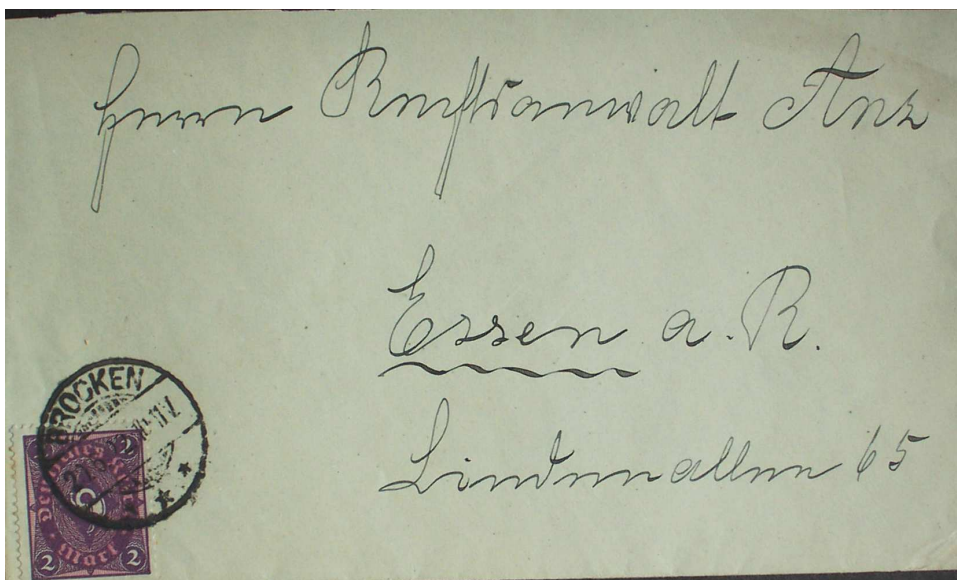 Herrn Rechtsanwalt Anz
Essen a. R.
Lindenallee 65
BROCKEN
10-11 V.
2 2
Deutsches Reich
Mark
2 2